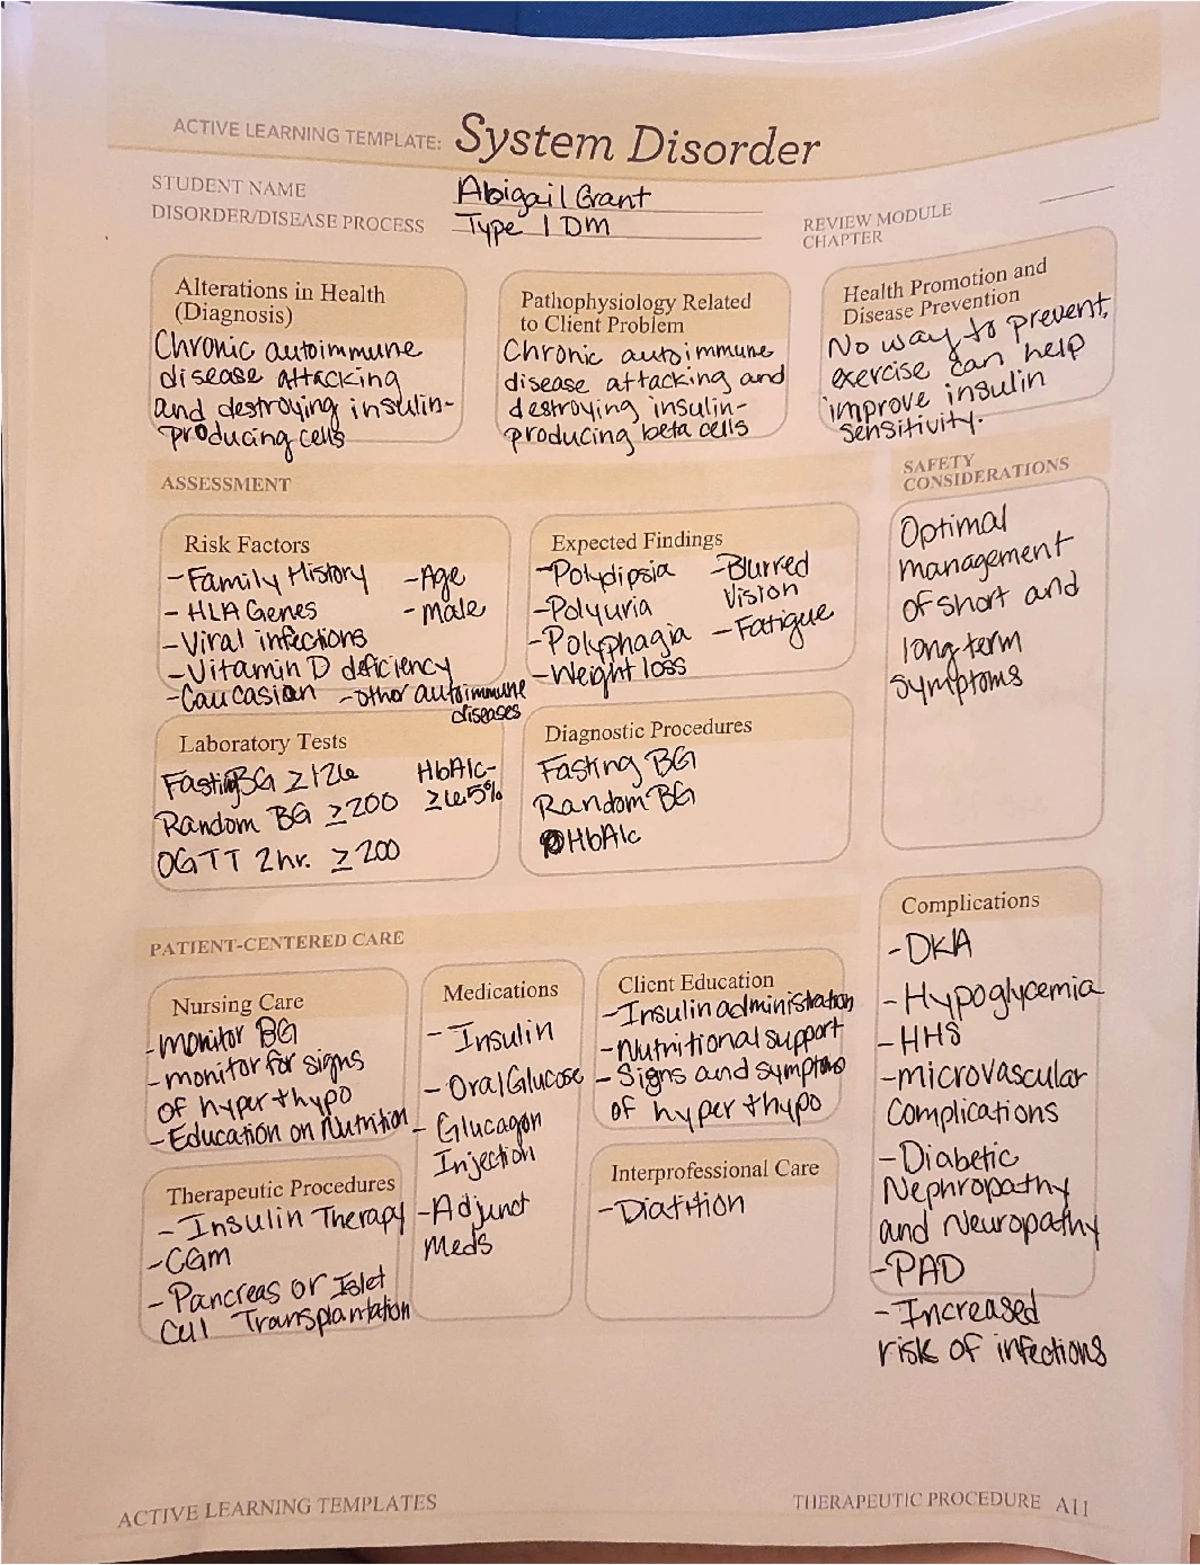 ACTIVE LEARNING TEMPLATE: System Disorder
STUDENT NAME Abigail Grant
DISORDER/DISEASE PROCESS Type 1 DM
REVIEW MODULE
CHAPTER
Alterations in Health
(Diagnosis)
Chronic autoimmune
disease attacking
and destroying insulin-
producing cells
Pathophysiology Related
to Client Problem
Chronic autoimmune
disease attacking and
destroying insulin-
producing beta cells
Health Promotion and
Disease Prevention
No way to prevent,
exercise can help
improve insulin
sensitivity.
ASSESSMENT
SAFETY
CONSIDERATIONS
Risk Factors
-Family History -Age
- HLA Genes -male
-Viral infections
-Vitamin D deficiency
-Caucasian -other autoimmune
diseases
Expected Findings
-Polydipsia -Blurred
Vision
-Polyuria
-Polyphagia -Fatigue
-Weight loss
Optimal
management
of short and
long term
symptoms
Laboratory Tests
Fasting BG ≥126 HbA1c-
Random BG ≥200 ≥6.5%
OGTT 2hr. ≥200
Diagnostic Procedures
Fasting BG
Random BG
HbA1c
PATIENT-CENTERED CARE
Nursing Care
-monitor BG
-monitor for signs
of hyper + hypo
-Education on Nutrition
Medications
- Insulin
- Oral Glucose
- Glucagon
Injection
-Adjunct
Meds
Client Education
-Insulin administration
-Nutritional support
-Signs and symptoms
of hyper + hypo
Complications
-DKA
-Hypoglycemia
-HHS
-microvascular
Complications
-Diabetic
Nephropathy
and Neuropathy
-PAD
-Increased
risk of infections
Therapeutic Procedures
- Insulin Therapy
-CGM
- Pancreas or Islet
Cell Transplantation
Interprofessional Care
-Diatition
ACTIVE LEARNING TEMPLATES
THERAPEUTIC PROCEDURE A11